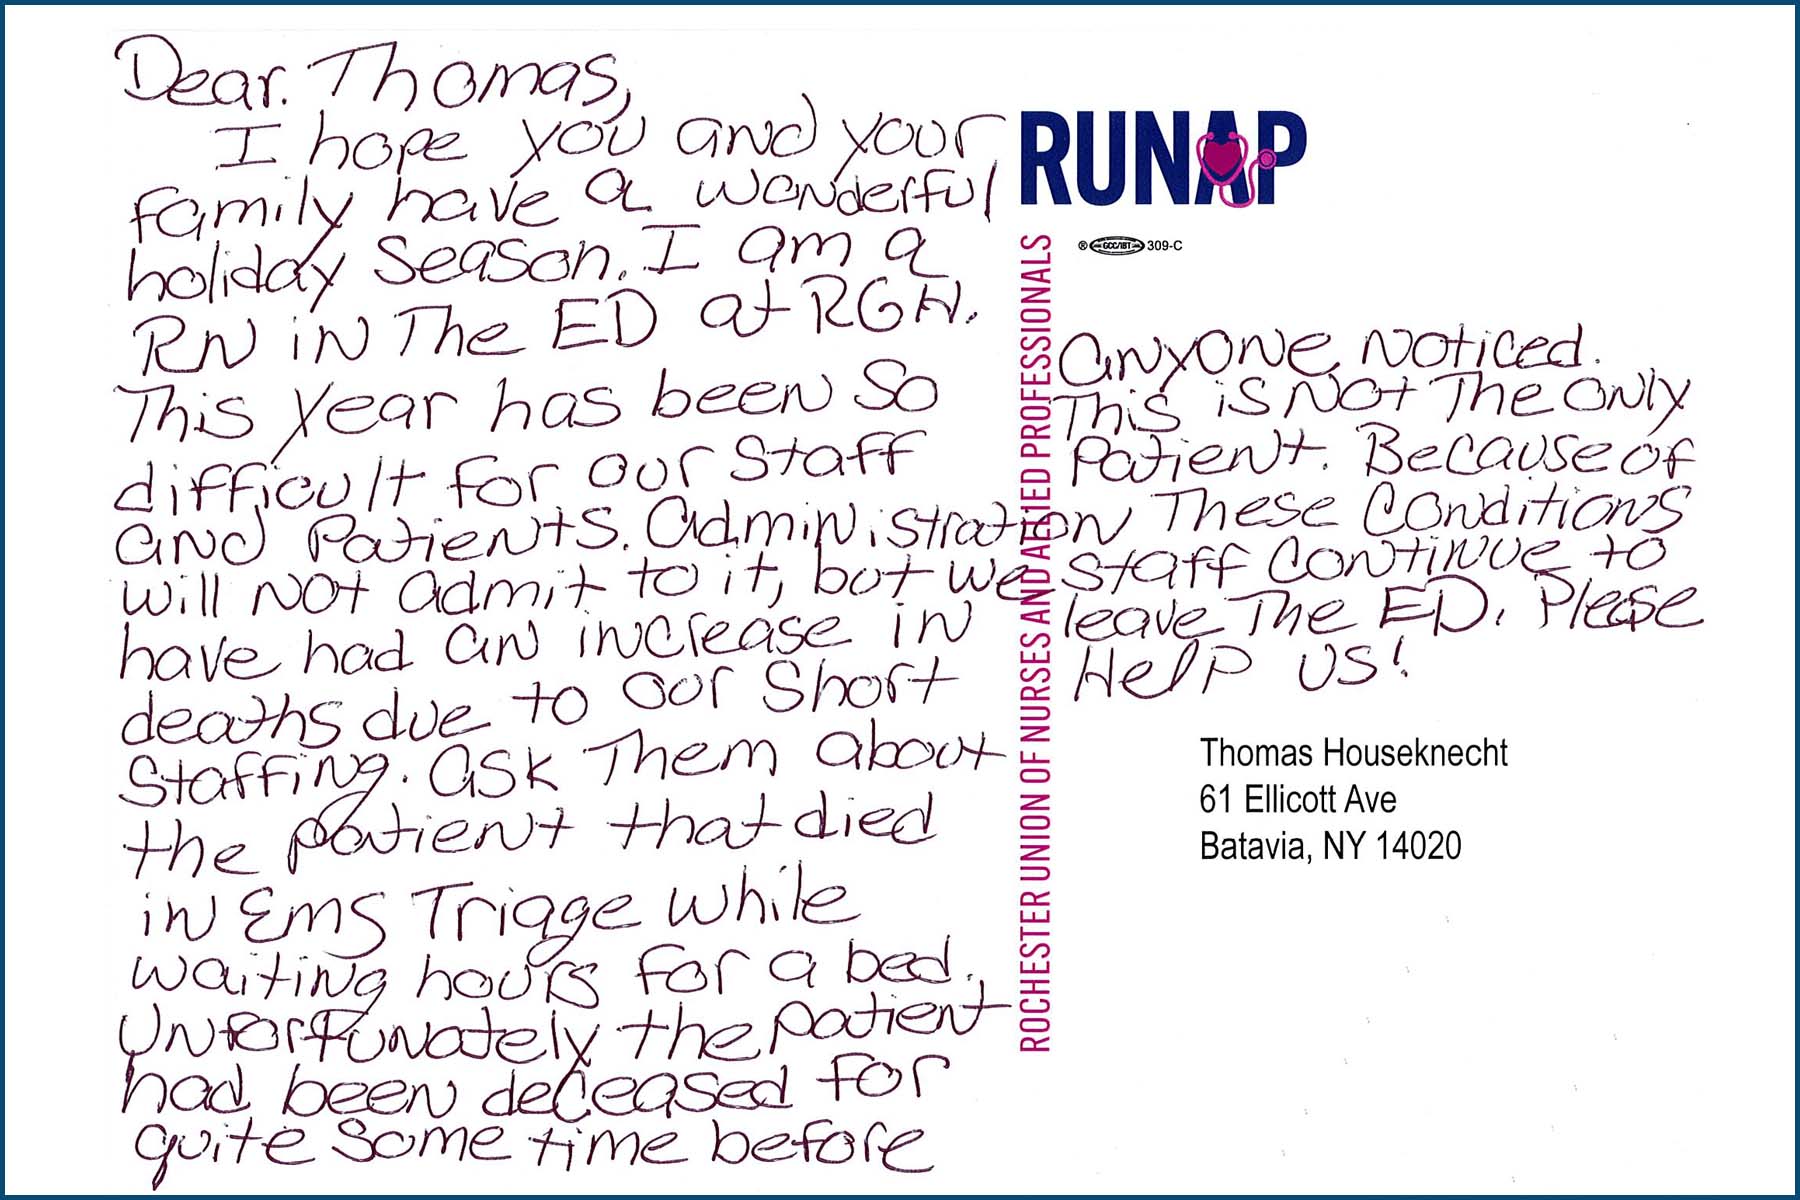 Dear. Thomas,
I hope you and your
family have a wonderful
holiday season. I am a
RN in The ED at RGH.
This Year has been so
difficult for our staff
and Patients. Administration
will not admit to it, but we
have had an increase in
deaths due to our short
staffing. Ask Them about
the patient that died
in EMS Triage while
waiting hours for a bed.
Unfortunately the patient
had been deceased for
quite some time before
RUNAP
® GCC/IBT 309-C
ROCHESTER UNION OF NURSES AND ALLIED PROFESSIONALS
anyone noticed.
This is Not The only
Patient. Because of
These Conditions
staff continue to
leave The ED. Please
Help us!
Thomas Houseknecht
61 Ellicott Ave
Batavia, NY 14020